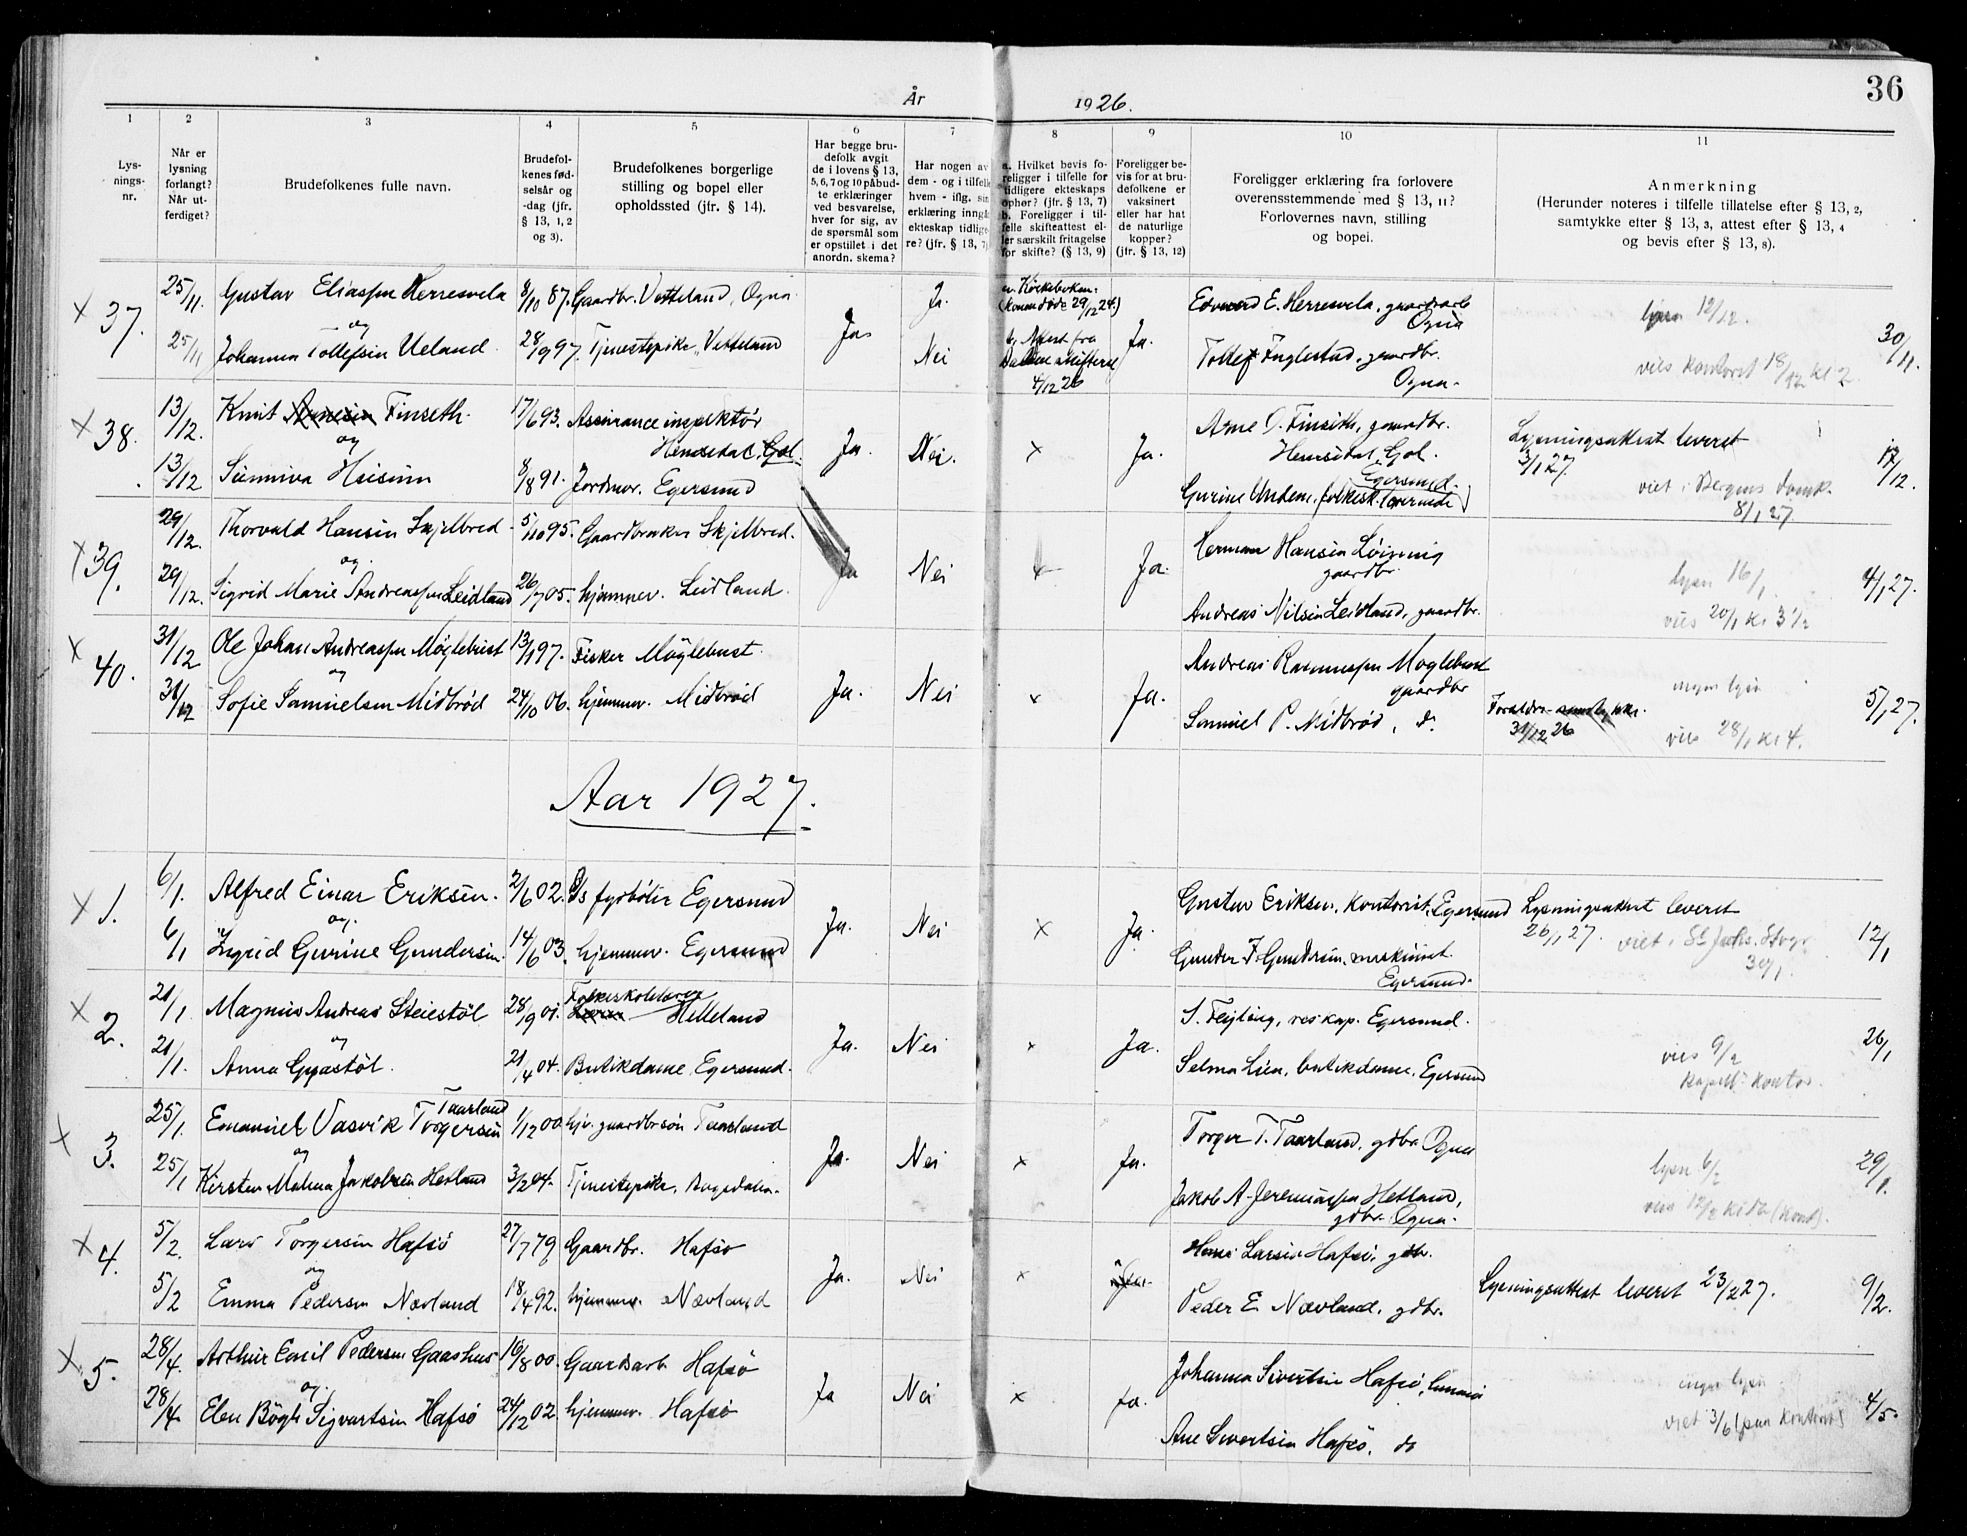 36
År 1926.
1 2 3 4 5 6 7 8 9 10 11
Lysnings-nr.
Når er lysning forlangt? Når utferdiget?
Brudefolkenes fulle navn.
Brudefolkenes fødselsår og -dag (jfr. § 13, 1, 2 og 3).
Brudefolkenes borgerlige stilling og bopel eller opholdssted (jfr. § 14).
Har begge brudefolk avgit de i lovens § 13, 5, 6, 7 og 10 påbudte erklæringer ved besvarelse, hver for sig, av de spørsmål som er opstillet i det anordn. skema?
Har nogen av dem - og i tilfelle hvem - iflg. sin erklæring inngått ekteskap tidligere? (jfr. § 13, 7)
a. Hvilket bevis foreligger i tilfelle for tidligere ekteskaps ophør? (jfr. § 13, 7) b. Foreligger i tilfelle skifteattest eller særskilt fritagelse for skifte? (§ 13, 9)
Foreligger bevis for at brudefolkene er vaksinert eller har hat de naturlige kopper? (jfr. § 13, 12)
Foreligger erklæring fra forlovere overensstemmende med § 13, 11? Forlovernes navn, stilling og bopel.
Anmerkning (Herunder noteres i tilfelle tillatelse efter § 13, 2, samtykke efter § 13, 3, attest efter § 13, 4 og bevis efter § 13, 8).
x 37. 25/11. Gustav Eliassen Herresvela 8/10 87. Gaardbr. Vetteland, Ogna. Ja Ja. a. Kirkeboken: (Konen døde 29/12 24.) Ja. Edvard E. Herresvela, gaardarb Ogna lysn 12/12. 30/11.
og
25/11 Johanna Tollefsen Ueland. 28/9 97. Tjenestepike, Vetteland Nei b. Attest fra Dalene skifterett 4/12 26 Tollef Fuglestad, gaardbr. Ogna. vies kontoret 18/12 kl 2.
x 38. 13/12. Knut Arnesen Finseth. 17/6 93. Assuranceinspektør Hemsedal, Gol. Ja. Nei. x Ja. Arne O. Finseth, gaardbr. Hemsedal, Gol. Lysningsattest leveret 3/1 27. 17/12.
og
13/12 Sunniva Heisunn 8/8 91. Jordmor. Egersund Gurine Undem, folkesk.lærerinde Egersund. viet i Bergens Domk. 8/1 27
x 39. 29/12. Thorvald Hansen Skjelbred. 5/10 95. Gaardbruker Skjelbred. Ja Nei x Ja. Herman Hansen Løining gaardbr. lysn 16/1. 4/1 27.
og.
29/12. Sigrid Marie Andreassen Leidland 26/7 05. hjemmev. Leidland. Andreas Nilsen Leidland, gaardbr. vies 20/1 kl 3 1/2
x 40. 31/12 Ole Johan Andreassen Møglebust 13/1 97. Fisker Møglebust. Ja. Nei x Ja. Andreas Rasmussen Møglebust gaardbr ingen lysn 5/1 27.
og
31/12 Sofie Samuelsen Midbrød 24/10 06. hjemmev. Midbrød Samuel P. Midbrød, do. Foreldre-samtykke. 31/12 26 vies 28/1 kl 4.
Aar 1927.
x 1. 6/1. Alfred Einar Eriksen. 2/6 02. D/s fyrbøter Egersund Ja. Nei x Ja. Gustav Eriksen, kontorist, Egersund Lysningsattest leveret 26/1 27. 12/1
og.
6/1 Ingrid Gurine Gundersen. 14/6 03. hjemmev. Egersund Gunder F Gundersen, maskinist. Egersund. viet i St Johs. Stvgr 30/1.
x 2. 21/1 Magnus Andreas Steiestøl 28/9 01. Folkeskolelærer Lærer Helleland Ja. Nei x Ja. S. Feyling, res kap. Egersund. 26/1
og
21/1. Anna Gyastøl. 21/4 04. Butikdame, Egersund. Selma Lien, butikdame, Egersund vies 9/2 kapell. kontor.
x 3. 25/1. Emanuel Vasvik Torgersen Taarland 1/12 00 hjv. gaardbrsøn Taarland Ja. Nei x Ja. Torger T. Taarland, gdbr. Ogna lysn 6/2 29/1.
og
25/1 Kirsten Malena Jakobsen Hetland 3/2 04. Tjenestepike, Jakob A. Jeremiassen Hetland, gdbr. Ogna. vies 12/2 kl
x 4. 5/2. Lars Torgersen Hafsø 27/7 79 Gaardbr. Hafsø Ja. Nei x Ja. Hans Larsen Hafsø, gdbr. Lysningsattest leveret 23/2 27. 9/2.
og
5/2 Emma Pedersen Nævland 18/4 92. hjemmev. Nævland Peder E. Nævland, gdbr.
x 5. 28/4. Arthur Emil Pedersen Gaashus 16/8 00. Gaardsarb. Hafsø Ja Nei x Ja. Johanna Sivertsen Hafsø, ingen lysn 4/5.
og.
28/4 Elen Bøgh Sigvartsen Hafsø 24/12 02. hjemmev. Hafsø Ane Sivertsen Hafsø, do viet 3/6 (paa kontoret)